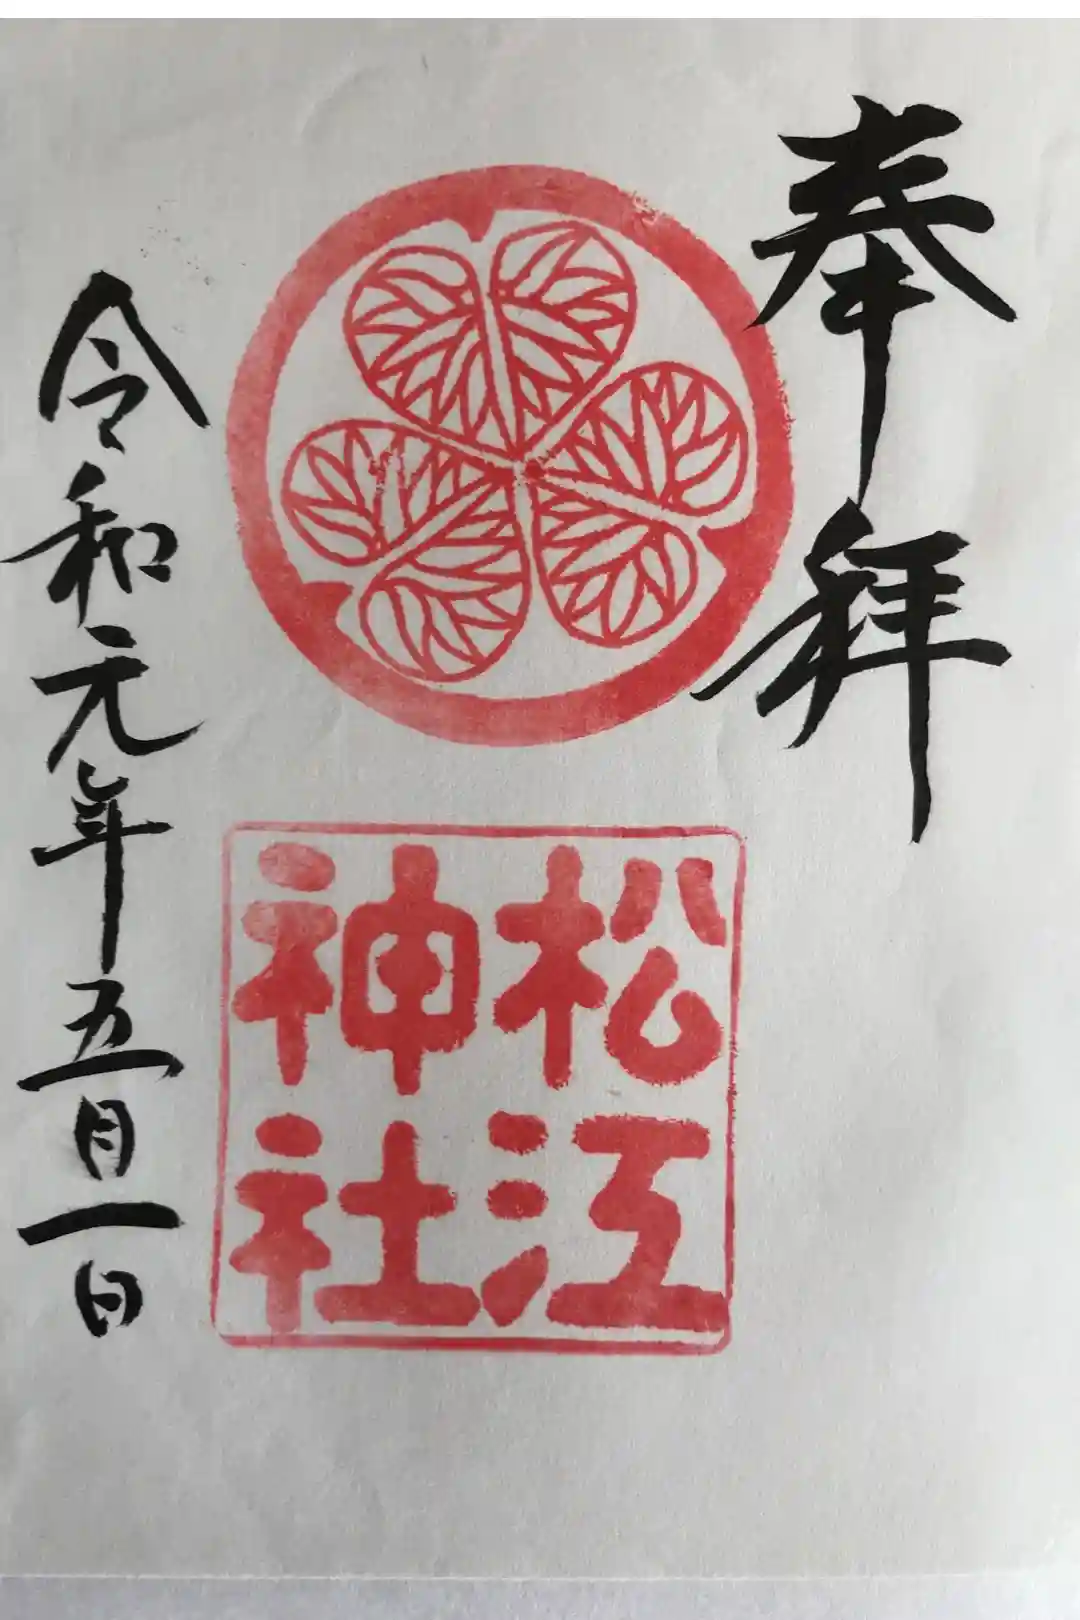 奉拝
松江
神社
令和元年五月一日